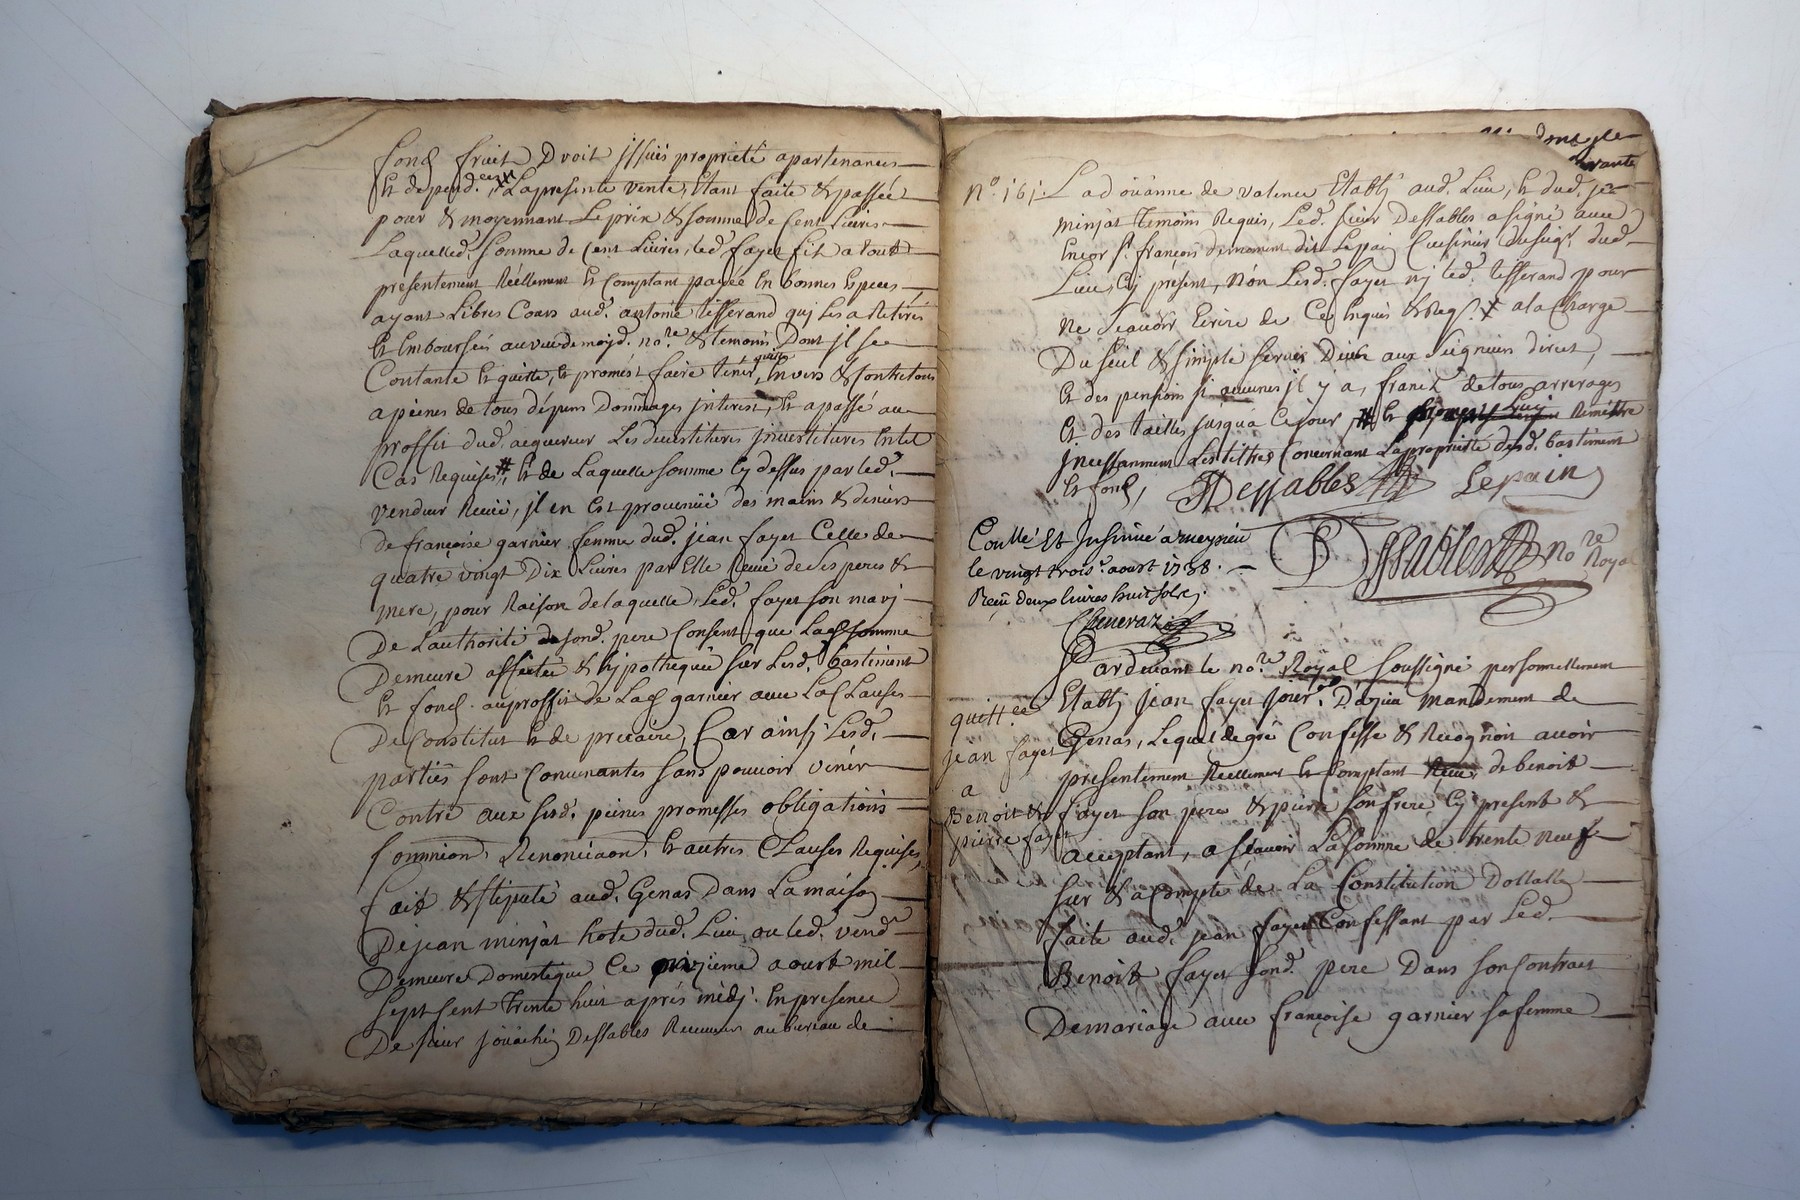 fond fruit Droit issües proprieté apartenances
Et dépend.ces La presente vente Etant faite & passée
pour & moyennant Le prix & somme de Cent Livres
Laquelled. Somme de Cent Livres, led. fayet fit a tout
presentement Réellement Et Comptant payée En bonnes Especes
ayant Libres Cours aud. antoine tisserand quj Les a Retirés
Et Emboursés au vue de moyd. no.re & temoins Dont jl se
Contante Et quitte, Et promést faire tenir quitte Envers & Contre tous
a peines de tous dépens Dommages jnterest, Et a passé au
proffit dud. acquereur Les devestitures jnvestitures En tel
Cas Requises # Et de Laquelle somme Cy dessus par led.
vendeur Reçüe, jl en Est provenüe des mains & deniers
de françoise garnier femme dud. jean fayet Celle de
quatre vingt Dix Livres par Elle Reçüe de ses peres &
mere, pour Raison de laquelle Led. fayet son mary
De L'authorité de sond. pere Consent que Lad. somme
Demeure affectée & hipothequée sur Lesd. bastiment
Et fond. au proffit de Lad. garnier avec La Clauses
De Constitut Et de precaire, Car ainsj Lesd.
parties sont Convenantes sans pouvoir venir
Contre aux susd. peines promesses obligations
soumnion, Renonciaon, Et autres Clauses Requises,
fait & stipulé aud. Genas Dans La maison
De jean minjat hote dud. Lieu ou led. vend.r
Demeure Domestique Ce onzieme aoust mil
sept Cent Trente huit aprés midj. En presence
De sieur joüachin Dessables Receveur au bureau de
N°. 161. La doüanne de valence Etablj aud. Lieu, Et dud. je
minjat temoins Requis, Led. sieur Dessables a signé avec
Encor S.r françois demoment dit Lepain Cuisinier du seig.r dud.
Lieu, Cy présent, Non Lesd. fayet nj led. tisserand pour
Ne Sçavoir Ecrire de Ce Enquis & Req. a la Charge
Du seul & simple servis Deub aux seigneurs direct,
Et des pensions si aucunes jl y a, franch de tous arrerages
Et des tailles jusqu'a Ce jour # Et Remettre
jncessamment Les tittres Concernant La proprieté desd. bastiment
Et fond, Dessables Lepain
Conllé Et Insinué a meyzieu
le vingt trois.e aoust 1738.
Reçu deux livres huit sols.
Cheneraz
Dessables no.re Royal
Pardevant le no.re Royal soussigné personnellement
Etablj jean fayet jour.r D'azieu mandement de
Genas, Lequel de gré Confesse & Recognoit avoir
presentement Réellement Et Comptant Reçeu de benoit
fayet son pere & pierre son frere Cy present &
acceptant, a sçavoir La somme de trente neuf
sur & a Compte de La Constitution Dottalle
faite aud. jean fayet Confessant par Led.
Benoit fayet sond. pere Dans son Contract
De mariage avec françoise garnier sa femme
quitt.ce
jean fayet
a
Benoit &
pierre fayet